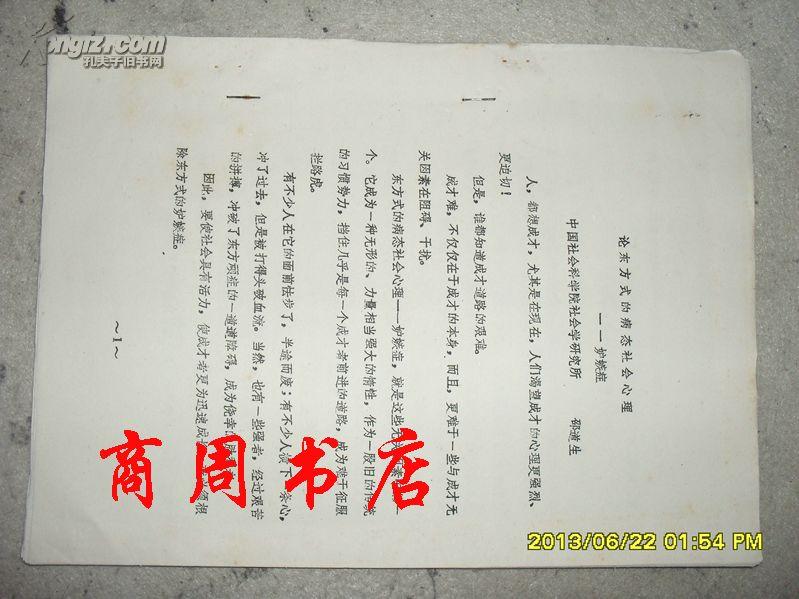 kongfz.com
孔夫子旧书网
论东方式的病态社会心理
——妒嫉症
中国社会科学院社会学研究所 邵道生
人，都想成才，尤其是在现在，人们渴望成才的心理更强烈、
更迫切！
但是，谁都知道成才道路的艰难。
成才难，不仅仅在于成才的本身，而且，更难于一些与成才无
关因素在阻碍、干扰。
东方式的病态社会心理——妒嫉症，就是这些无关
个。它成为一种无形的、力量相当强大的惰性，作为一股旧的传统
的习惯势力，挡住几乎是每一个成才者前进的道路，成为难于征服
拦路虎。
有不少人在它的面前怯步了，半途而废；有不少人横下一条心，
冲了过去，但是被打得头破血流。当然，也有一些强者，经过艰苦
的拼搏，冲破了东方顽症的一道道障碍，成为侥幸的
因此，要使社会具有活力，使成才者更为迅速成长，
除东方式的妒嫉症。
～1～
商周书店
2013/06/22 01:54 PM